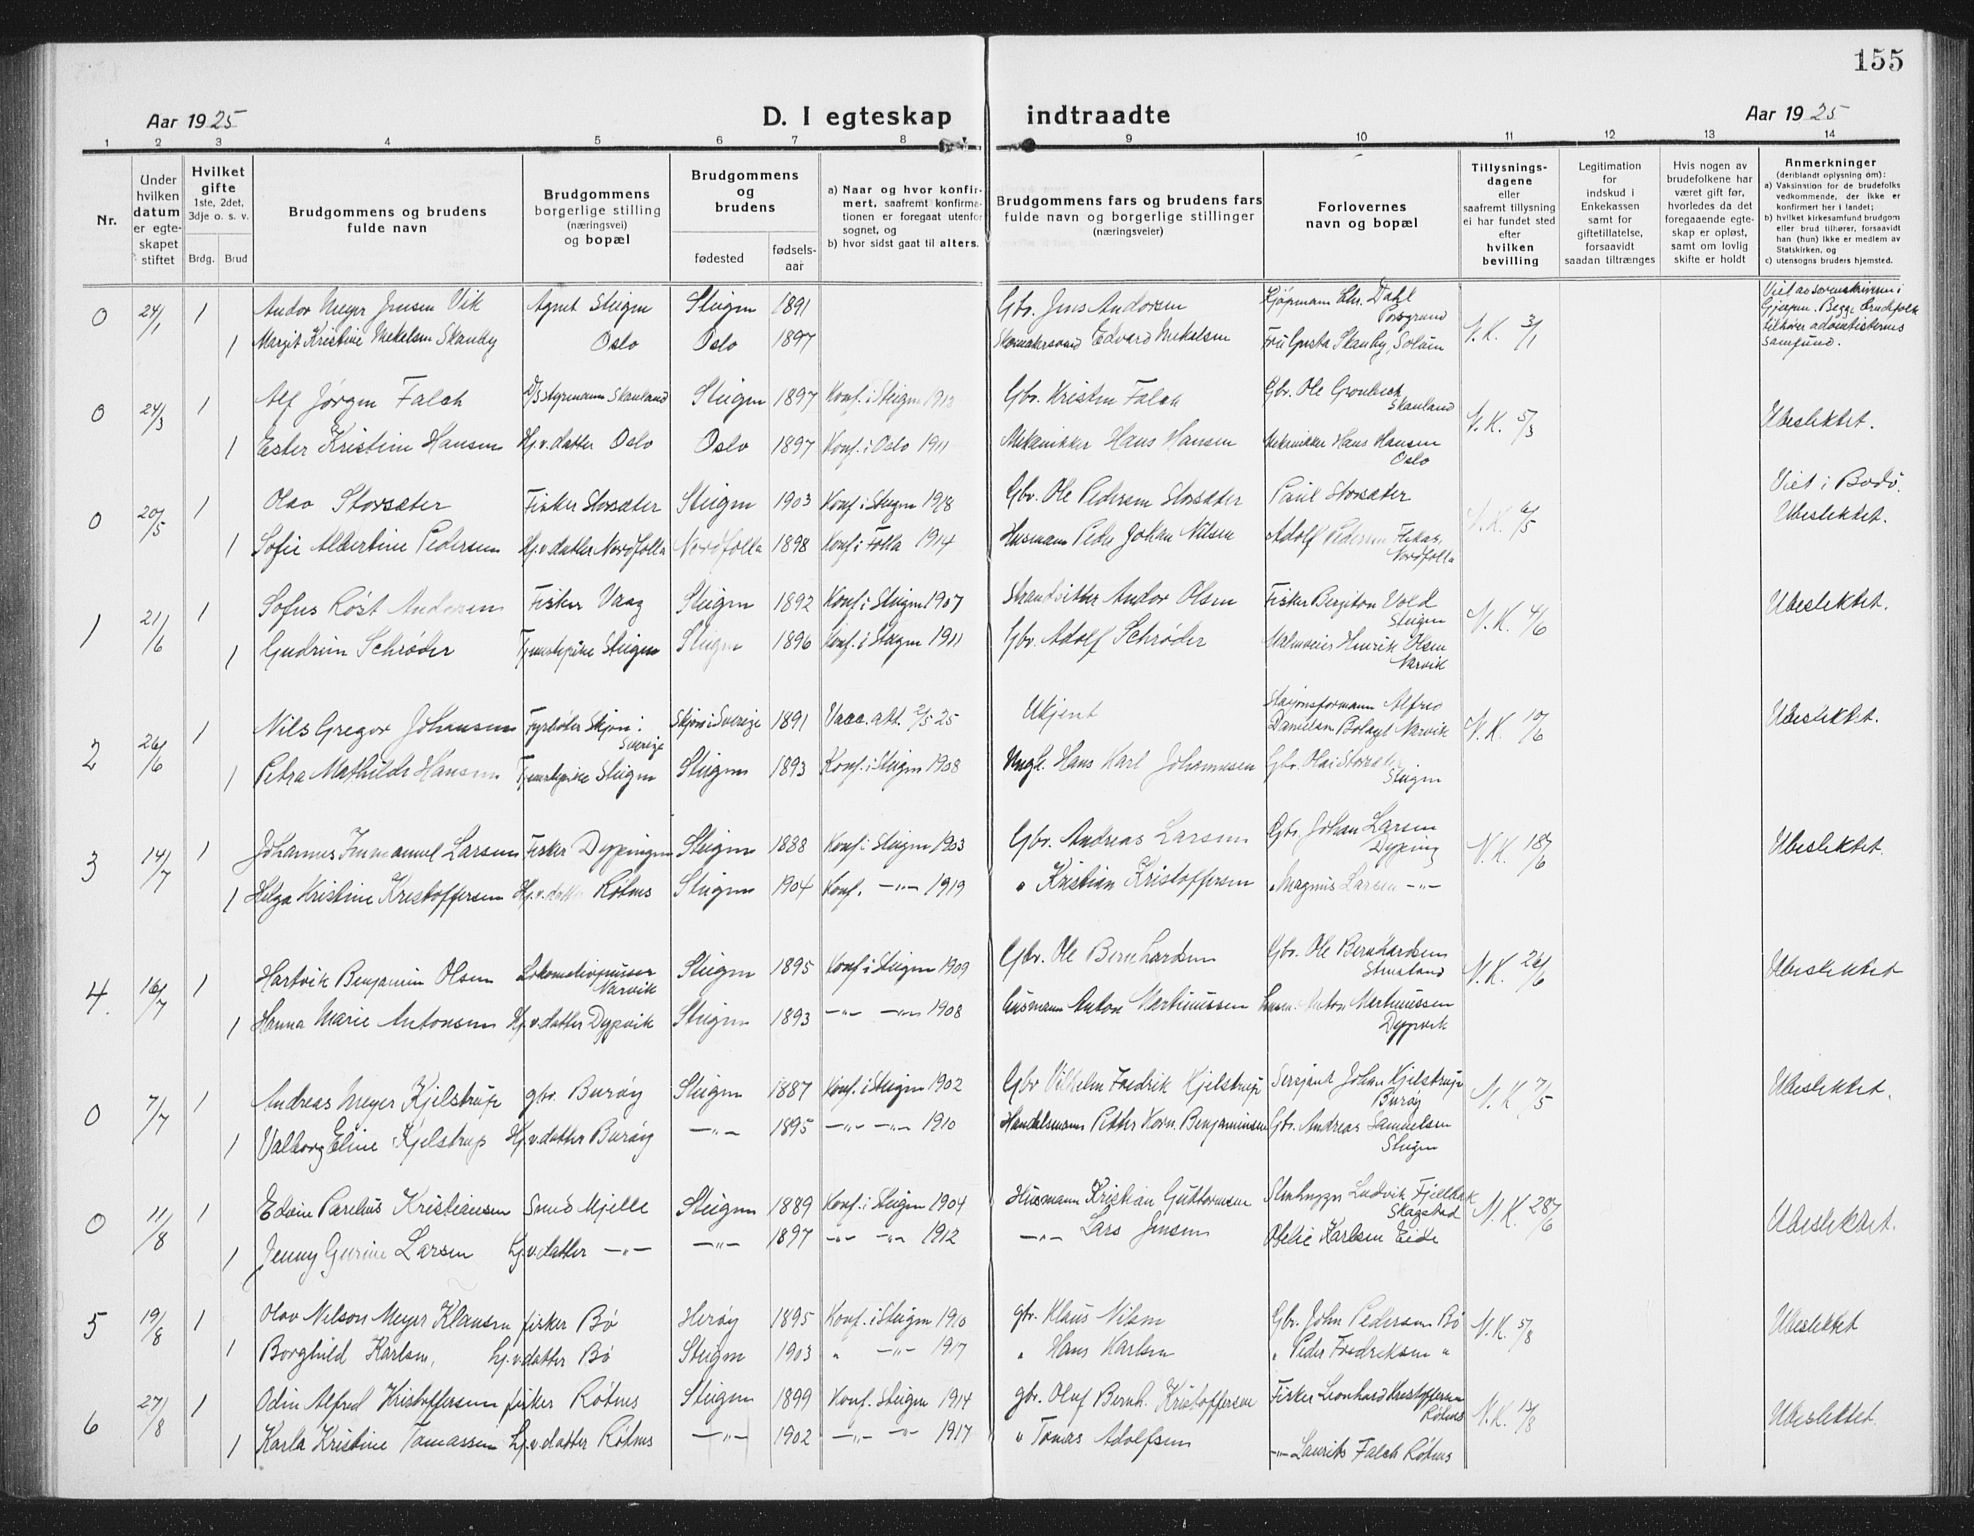 155
Aar 1925 D. I egteskap indtraadte Aar 1925
1 2 3 4 5 6 7 8 9 10 11 12 13 14
Nr.
Under hvilken datum er egteskapet stiftet
Hvilket gifte 1ste, 2det, 3dje o. s. v. Brdg. Brud
Brudgommens og brudens fulde navn
Brudgommens borgerlige stilling (næringsvei) og bopæl
Brudgommens og brudens fødested fødselsaar
a) Naar og hvor konfirmert, saafremt konfirmationen er foregaat utenfor sognet, og b) hvor sidst gaat til alters.
Brudgommens fars og brudens fars fulde navn og borgerlige stillinger (næringsveier)
Forlovernes navn og bopæl
Tillysningsdagene eller saafremt tillysning ei har fundet sted efter hvilken bevilling
Legitimation for indskud i Enkekassen samt for giftetillatelse, forsaavidt saadan tiltrænges
Hvis nogen av brudefolkene har været gift før, hvorledes da det foregaaende egteskap er opløst, samt om lovlig skifte er holdt
Anmerkninger (deriblandt oplysning om): a) Vaksination for de brudefolks vedkommende, der ikke er konfirmert her i landet; b) hvilket kirkesamfund brudgom eller brud tilhører, forsaavidt han (hun) ikke er medlem av Statskirken, og c) utensogns bruders hjemsted.
0 24/1 1 Andor Meyer Jensen Vik Agent Steigen Steigen 1891 Gbr. Jens Andorsen Kjøpmann Chr. Dahl Porsgrund V.K. 3/1 Viet av sorenskriveren i Gjerpen. Begge brudefolk tilhører adventisternes samfund.
1 Margit Kristine Mekalsen Skauby Oslo Oslo 1897 Edvard Mekalsen Fru Gusta Skauby, Solum
0 24/3 1 Alf Jørgen Falch D/S styrmann Skanland Steigen 1897 Konf. i Steigen 1912 Gbr. Kristen Falch Gbr. Ole Grønbech Skanland V.K. 5/3 Ubeslektet.
1 Ester Kristine Hansen Hj.v.datter Oslo Oslo 1897 Konf. i Oslo 1911 Mekanikker Hans Hansen Mekanikker Hans Hansen Oslo
0 20/5 1 Olav Storsæter Fisker Storsæter Steigen 1903 Konf. i Steigen 1918 Gbr. Ole Pedersen Storsæter Paul Storsæter V.K. 6/5 Viet i Bodø. Ubeslektet.
1 Sofie Albertine Pedersen Hj.v.datter Nordfolla Nordfolla 1898 Konf. i Folla 1914 Husmann Peder Johan Nilsen Adolf Pedersen Nordfolla
1 21/6 1 Sofus Røst Andorsen Fisker Vaag Steigen 1892 Konf. i Steigen 1907 Strandsitter Andor Olsen Fisker Bergiton Vold Steigen V.K. 4/6 Ubeslektet.
1 Gudrun Schrøder Tjenestepike Steigen Steigen 1896 Konf. i Steigen 1911 Gbr. Adolf Schrøder Henrik Olsen Narvik
2 26/6 1 Nils Gregor Johansen Fyrbøter Skjøn i Sverige Skjøn i Sverige 1891 Vacc. att. 2/5 25 Ukjent Stasjonsformann Alfred Danielsen Narvik V.K. 10/6 Ubeslektet.
1 Petra Mathilde Hansen Tjenestepike Steigen Steigen 1893 Konf. i Steigen 1908 Ungk. Hans Karl Johannesen Gbr. Olai Storsæter Steigen
3 14/7 1 Johannes Immanuel Larsen Fisker Dyping Steigen 1888 Konf. i Steigen 1903 Gbr. Andreas Larsen Gbr. Johan Larsen Dyping V.K. 18/6 Ubeslektet.
1 Helga Kristine Kristoffersen Hj.v.datter Røtnes Steigen 1904 Konf. -"- 1919 " Kristian Kristoffersen " Magnus Larsen -"-
4. 16/7 1 Hartvik Benjamin Olsen Lokomotivpusser Narvik Steigen 1895 Konf. i Steigen 1909 Gbr. Ole Bernhardsen Gbr. Ole Bernhardsen V.K. 26/6 Ubeslektet
1 Hanna Marie Antonsen Hj.v.datter Dypvik Steigen 1893 -"- -"- 1908 Husmann Anton Martinussen Husm. Anton Martinussen Dypvik
0 7/7 1 Andreas Meyer Kjelstrup gbr. Burøy Steigen 1887 Konf. i Steigen 1902 Gbr Vilhelm Fredrik Kjelstrup Sersjant Johan Kjelstrup Burøy V.K. 7/5 Ubeslektet.
1 Valborg Eline Kjelstrup Hj.v.datter Burøy -"- 1895 -"- -"- 1910 Handelsmann Petter Korn. Benjaminsen Gbr. Andreas Samuelsen Steigen
0 11/8 1 Edvin Parelius Kristiansen Smed Mjelle Steigen 1889 Konf. i Steigen 1904 Husmann Kristian Guttormsen Ludvik Skagstad V.K. 28/6 Ubeslektet.
1 Jenny Gurine Larsen hj.v.datter -"- -"- 1897 -"- -"- 1912 -"- Lars Jensen Ofelie Karlsen Eide
5 19/8 1 Olav Nilson Meyer Klausen fisker Bø Herøy 1895 Konf. i Steigen 1910 gbr. Klaus Nilsen Gbr. John Pedersen Bø V.K. 5/8 Ubeslektet
1 Borghild Karlsen, hj.v.datter Bø Steigen 1903 " -"- 1917 " Hans Karlsen " Peder Fredriksen "
6 27/8 1 Odin Alfred Kristoffersen fisker Røtnes Steigen 1899 Konf. Steigen 1914 gbr. Oluf Bernh. Kristoffersen Fisker Leonhard Kristoffersen Røtnes V.K. 13/8 Ubeslektet.
1 Karla Kristine Tomassen hj.v.datter Røtnes -"- 1902 -"- -"- 1917 " Tomas Adolfsen -"- Laurits Falch Røtnes